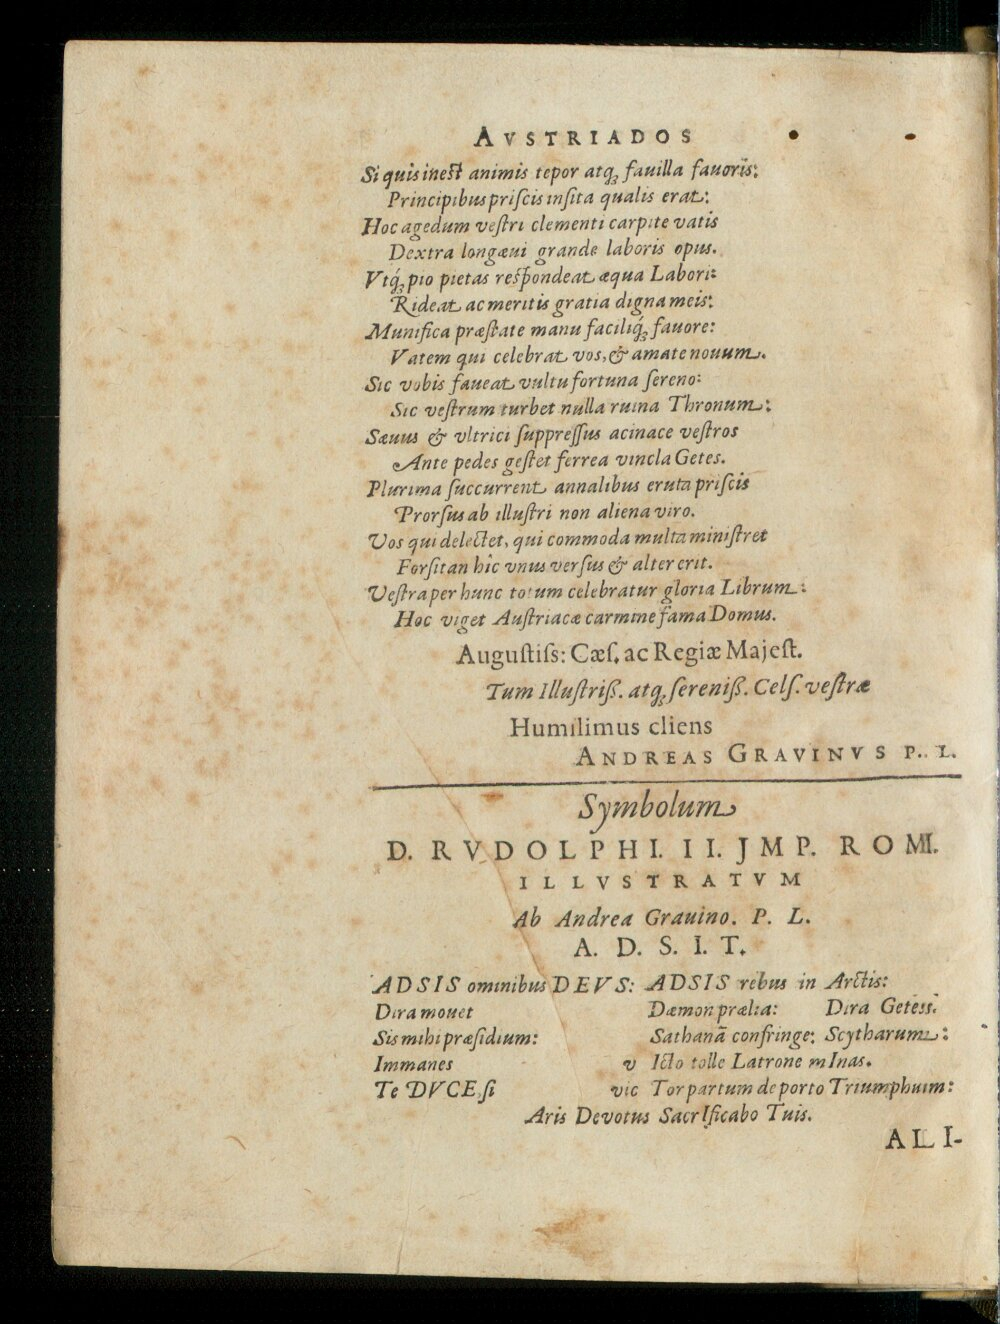 AVSTRIADOS
Si quis inest animis tepor atq; fauilla fauoris:
Principibus priſcis inſita qualis erat:
Hoc agedum veſtri clementi carpite vatis
Dextra longæui grande laboris opus.
Vtq́; pio pietas reſpondeat æqua Labori:
Rideat ac meritis gratia digna meis:
Munifica præſtate manu faciliq́; fauore:
Vatem qui celebrat vos, & amate nouum.
Sic vobis faueat vultu fortuna ſereno:
Sic veſtrum turbet nulla ruina Thronum:
Sæuus & vltrici ſuppreſſus acinace veſtros
Ante pedes geſtet ferrea vincla Getes.
Plurima ſuccurrent annalibus eruta priſcis
Prorſus ab illuſtri non aliena viro.
Vos qui delectet, qui commoda multa miniſtret
Forſitan hîc vnus verſus & alter erit.
Veſtra per hunc totum celebratur gloria Librum:
Hoc viget Auſtriacæ carmine fama Domus.
Auguſtiſs: Cæſ. ac Regiæ Majeſt.
Tum Illuſtriß. atq; ſereniß. Celſ. veſtræ
Humilimus cliens
ANDREAS GRAVINVS P. L.
Symbolum
D. RVDOLPHI. II. JMP. ROMI.
ILLVSTRATVM
Ab Andrea Grauino. P. L.
A. D. S. I. T.
ADSIS omnibus DEVS: ADSIS rebus in Arctis:
Dira mouet Dæmon prælia: Dira Getes:
Sis mihi præſidium: Sathanã confringe: Scytharum:
Immanes v Icto tolle Latrone mInas.
Te DVCE, ſi vic Tor partum de porto Triumphum:
Aris Devotus SacrIficabo Tuis.
ALI-